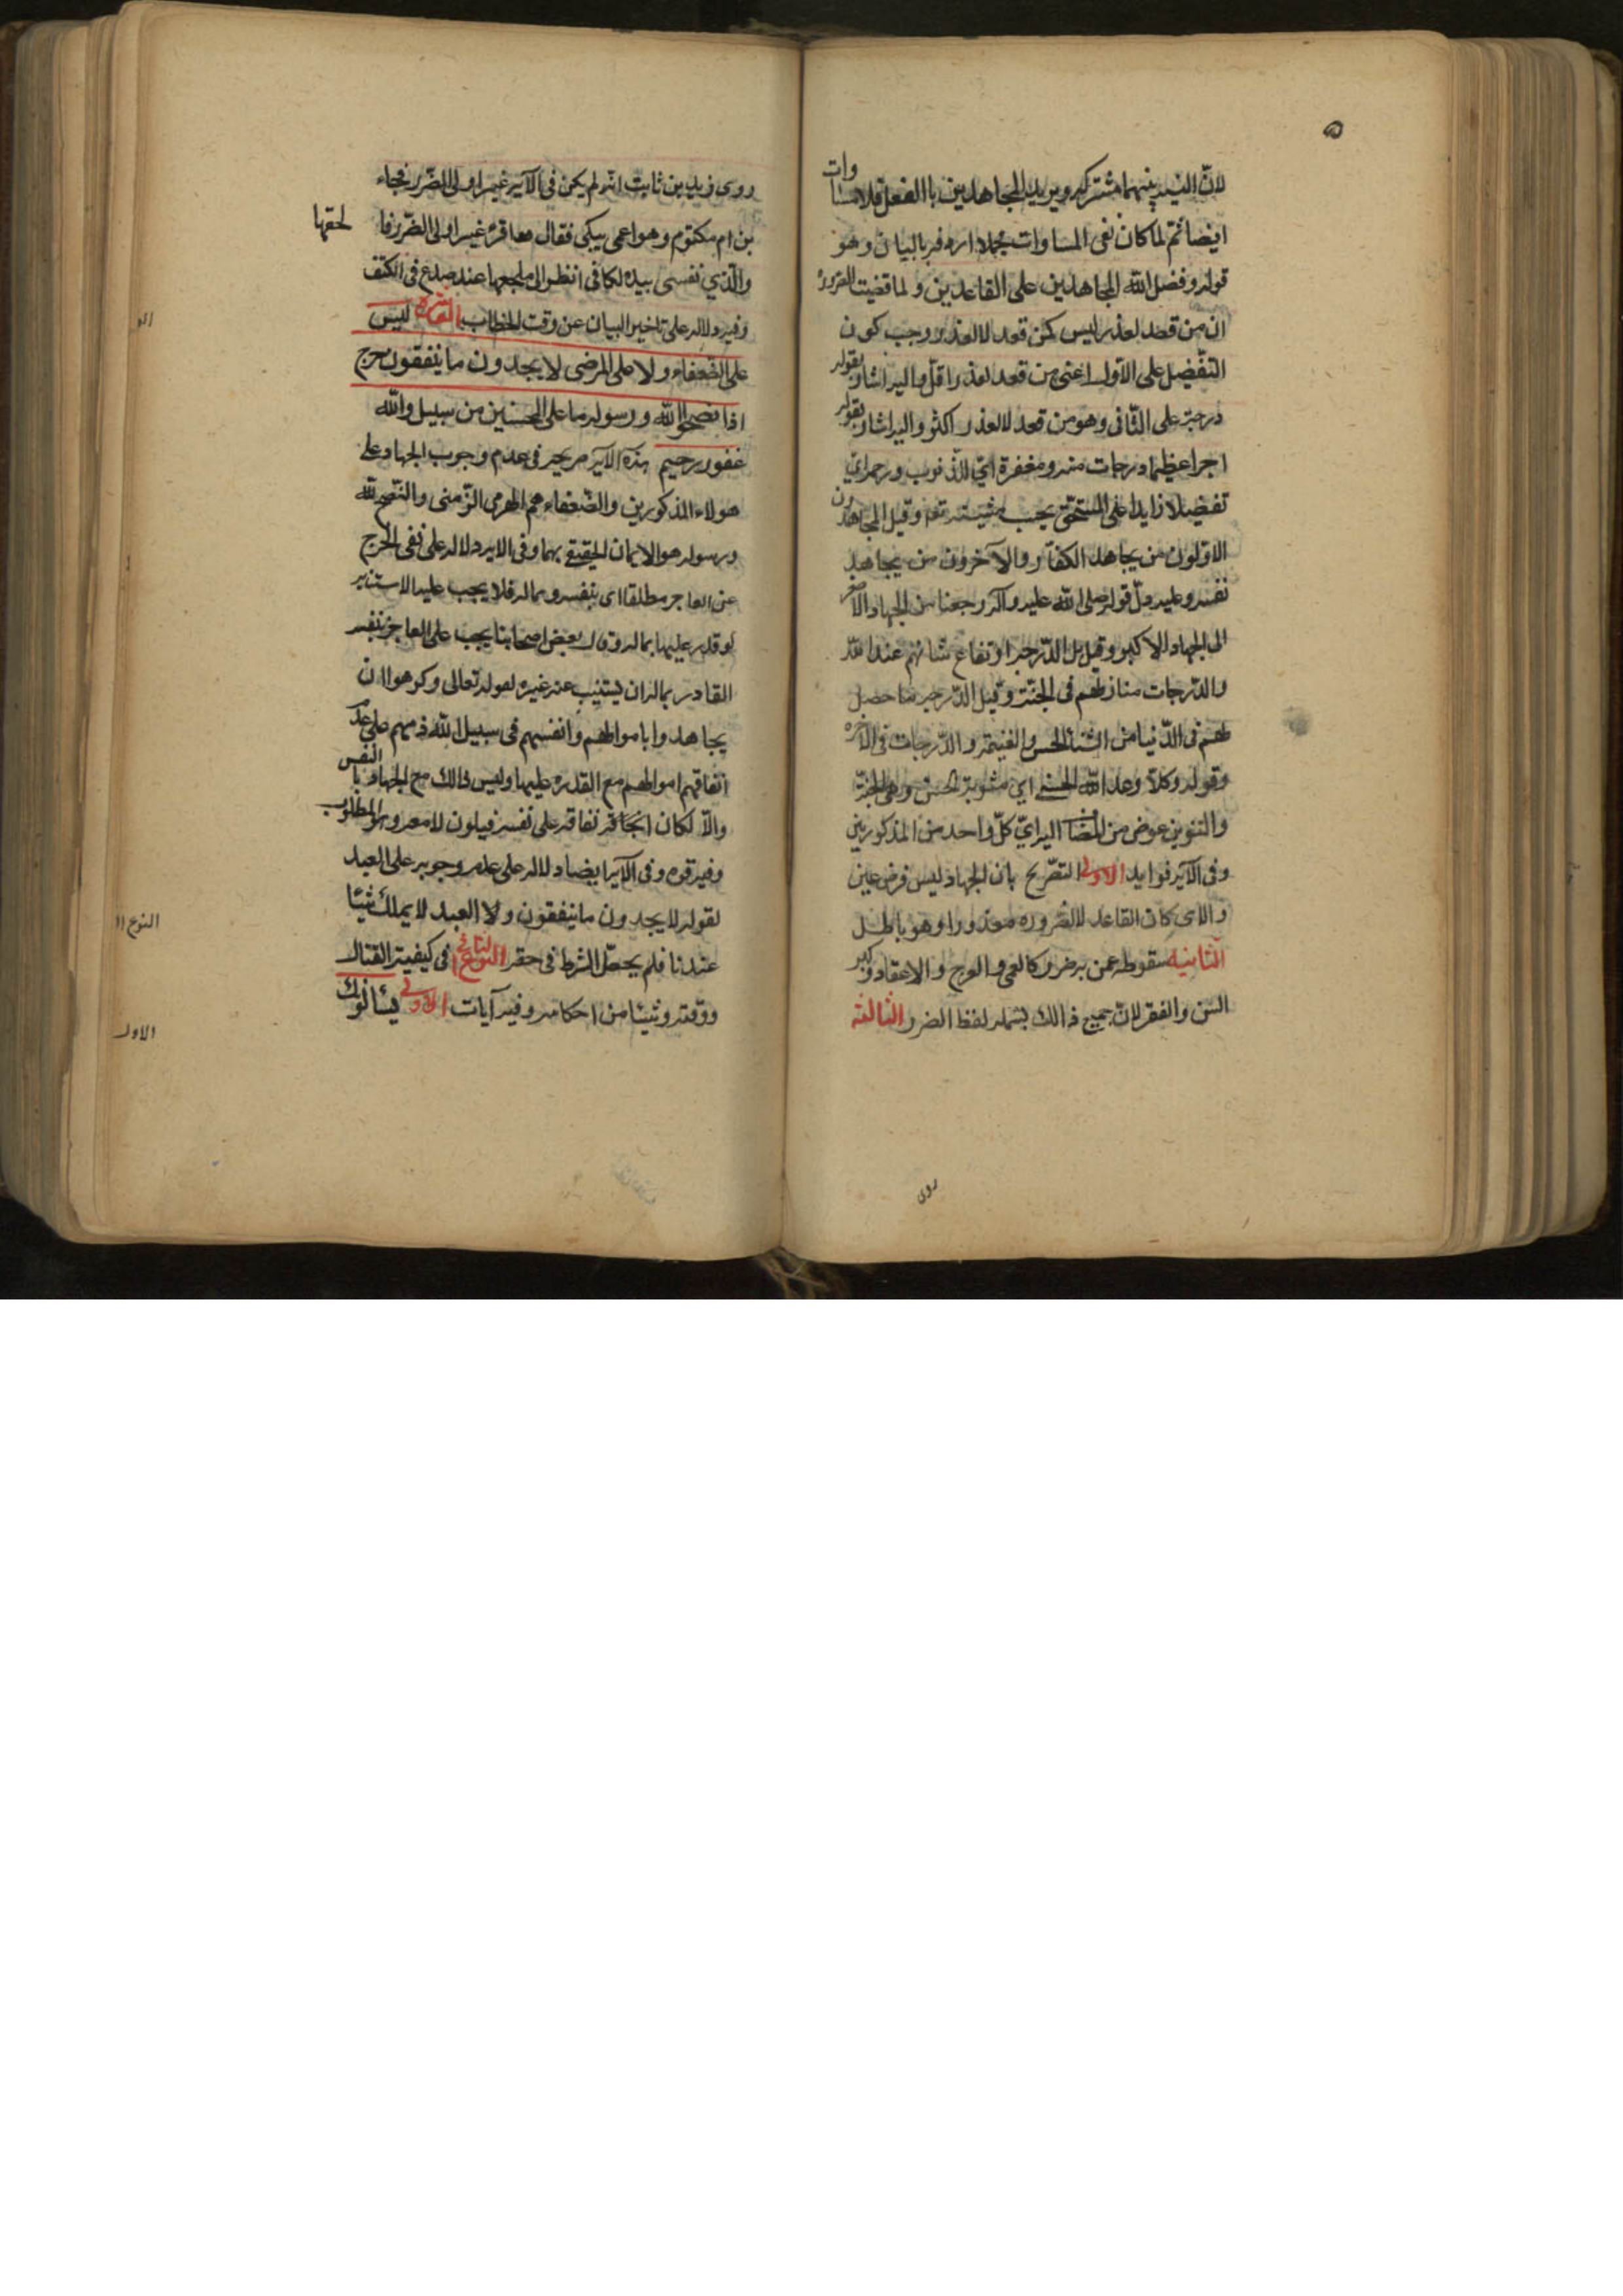 لانّ النيه بينهما مشتركه ويريد المجاهدين باالفعل فلا مساوات
ايضا ثم لما كان نفى المساوات مجملا اردفه بالبيان وهو
قوله وفضل الله المجاهدين على القاعدين ولما قضيت الضرورة
ان من قعد لعذر ليس كمن قعد لا لعذر وجب كون
التفضيل على الاول اعنى من قعد لعذر اقلّ واليه اشار بقوله
درجة على الثانى وهو من قعد لا لعذر اكثر واليه اشار بقوله
اجرا عظيما درجات منه ومغفرة اي للذنوب ورحمة اي
تفضيلا زايدا على المستحق بحسب مشيته تعا وقيل المجاهدون
الاولون من يجاهد الكفار والآخرون من يجاهد
نفسه وعليه دلّ قوله صلى الله عليه وآله رجعنا من الجهاد الاصغر
الى الجهاد الاكبر وقيل بل الدرجة ارتفاع شانهم عند الله
والدرجات منازلهم فى الجنة وقيل الدرجه ما حصل
لهم فى الدّنيا من الثناء الحسن والغنيمة والدرجات فى الآخره
وقوله وكلا وعد الله الحسنى اي مثوبة الحسن وهى الجنة
والتنوين عوض من المضاف اليه اي كلّ واحد من المذكورين
وفى الآيه فوايد الاولى التصّريح بان الجهاد ليس فرض عين
والا لكان القاعد لا لضروره معذورا وهو باطل
الثانيه سقوطه عمن به ضرر كالعمى والعرج والاعقاد وكبر
السن والفقر لانّ جميع ذالك يشمله لفظ الضرر الثالثه
روى
روى زيد بن ثابت انه لم يكن فى الآيه غير اولى الضّرر فجاء
بن ام مكتوم وهو اعمى يبكى فقال معا قره غير اولى الضّرر فا لحقتها
والّذي نفسى بيده لكانى انظر الى ملحقها عند صدع فى الكتف
وفيه دلاله على تاخير البيان عن وقت الخطاب العاشره ليس
على الضّعفاء ولا على المرضى لا يجدون ما ينفقون حرج
اذا نصحوا لله ورسوله ما على المحسنين من سبيل والله
غفور رحيم هذه الآيه صريحه فى عدم وجوب الجهاد على
هولاء المذكورين والضّعفاء هم الهرمى الزّمنى والنّصح لله
ورسوله هو الايمان الحقيقى بهما وفى الايه دلاله على نفى الحرج
عن العاجز مطلقا اى بنفسه وماله فلا يجب عليه الاستنابه
لو قدر عليها بماله وقال بعض اصحابنا يجب على العاجز بنفسه
القادر بماله ان يستنيب عنه غيره لقوله تعالى وكرهوا ان
يجاهدوا باموالهم وانفسهم فى سبيل الله ذمهم على عدم
انفاقهم اموالهم مع القدره عليها وليس ذالك مع الجهاد باالنفس
والاّ لكان انفاقه على نفسه فيكون لا معه وهو المطلوب
وفيه قوه وفى الآيه ايضا دلاله على عدم وجوبه على العبد
لقوله لا يجدون ما ينفقون ولا العبد لا يملك شيئا
عندنا فلم يحصّل الشرط فى حقه النوع الثانى فى كيفية القتال
ووقته وشيئا من احكامه وفيه آيات الاولى يسألونك
النوع ١١
الاول